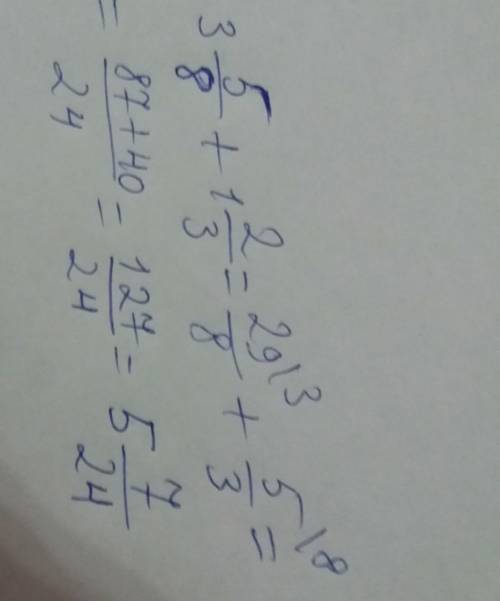 3 5/8 + 1 2/3 = 29\3/8 + 5\8/3 =
= 87+40/24 = 127/24 = 5 7/24